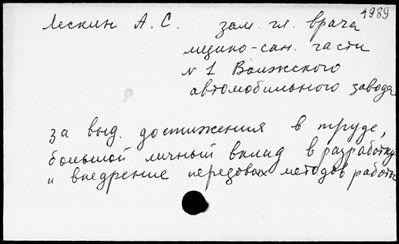 4989
Лескин А. С. зам. гл. врача
медико-сан. части
№ 1 Волжского
автомобильного завода
за выд. достижения в труде,
большой личный вклад в разработку
и внедрение передовых методов работы